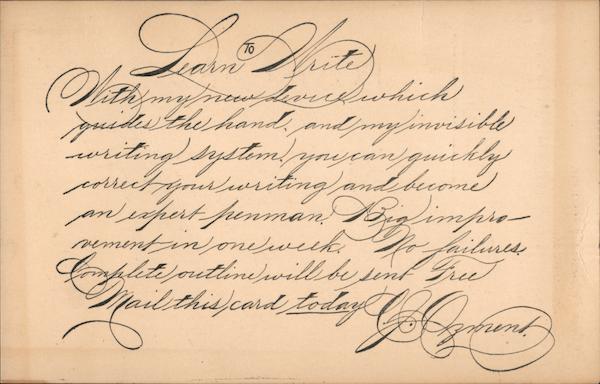 Learn To Write
With my new device which
guides the hand, and my invisible
writing system, you can quickly
correct your writing and become
an expert penman. Big impro-
vement in one week. No failures.
Complete outline will be sent Free
Mail this card today C. J. Ozment.